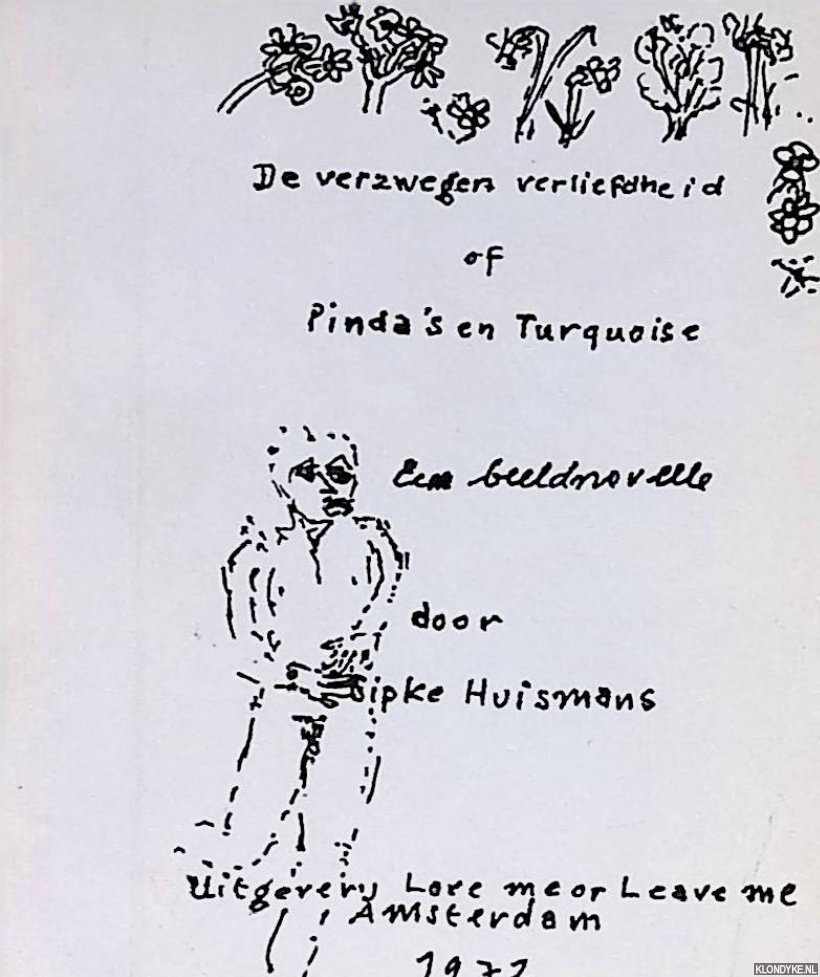 De verzwegen verliefdheid
of
Pinda's en Turquoise
Een beeldnovelle
door
Sipke Huismans
Uitgevery Love me or Leave me
Amsterdam
KLONDYKE.NL